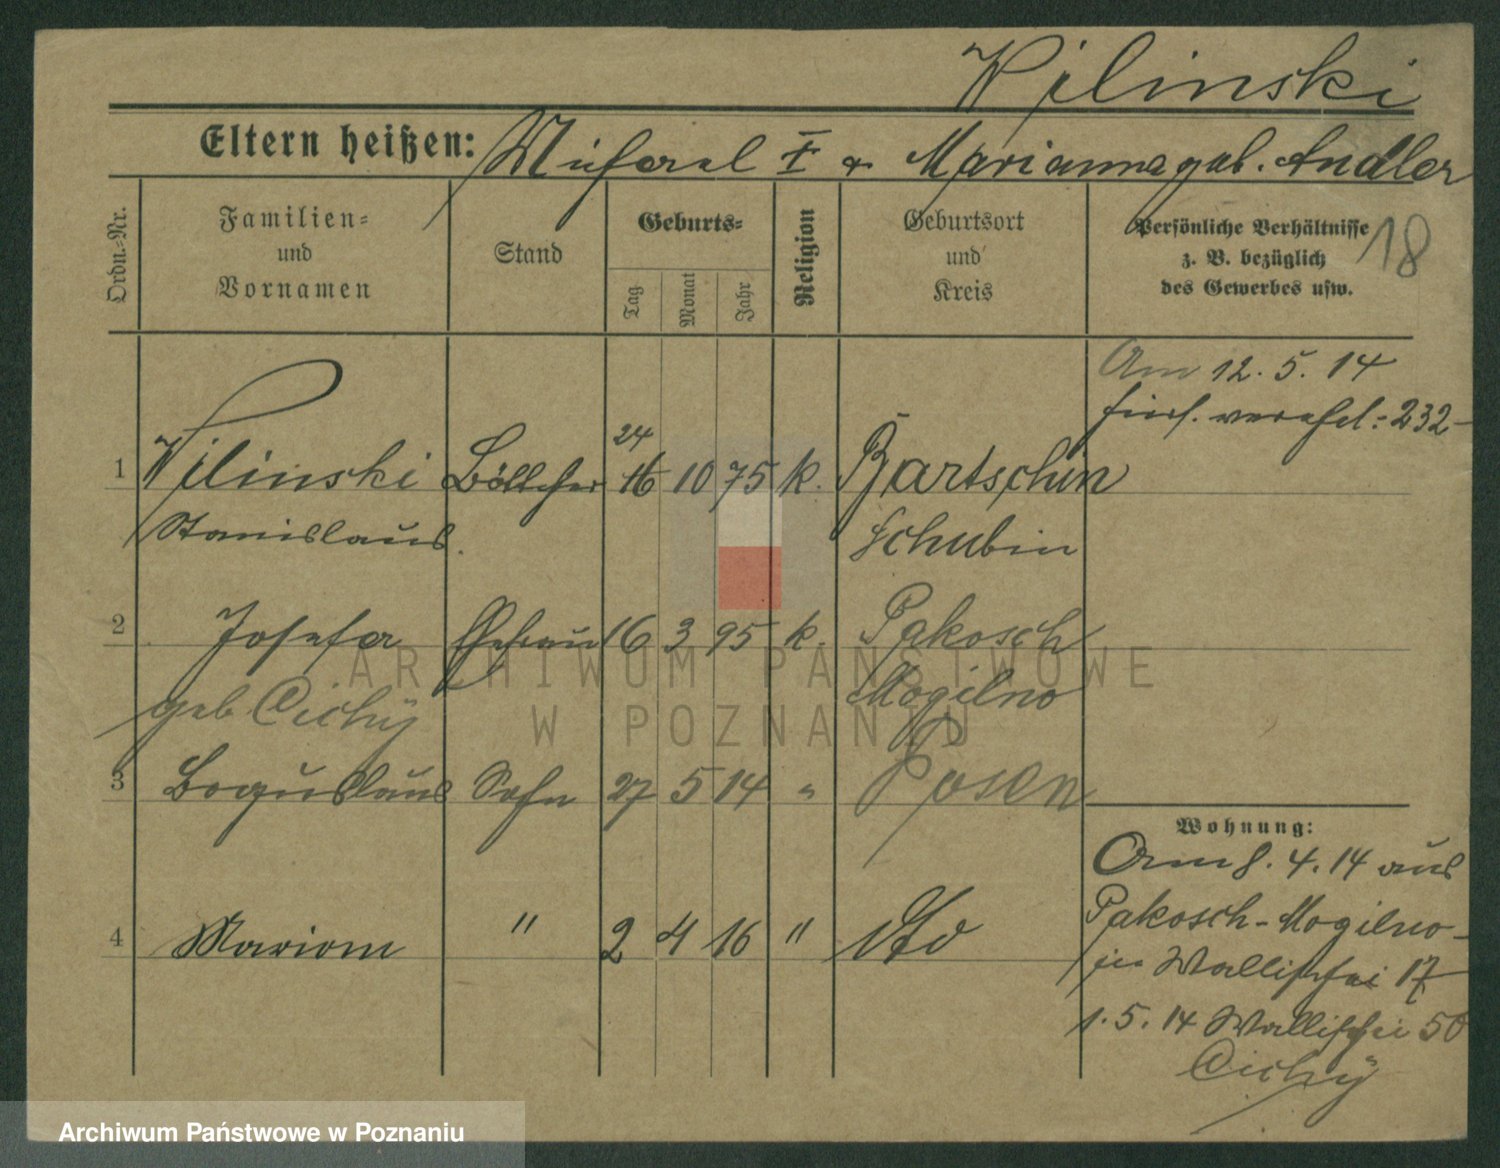 Wilinski
Eltern heißen: Michael I + Marianna geb. Andler
Ordn.-Nr.
Familien-
und
Vornamen
Stand
Geburts-
Tag
Monat
Jahr
Religion
Geburtsort
und
Kreis
Persönliche Verhältnisse
z. B. bezüglich
des Gewerbes usw.
18
Am 12. 5. 14
hier verehel. 232
24
1 Wilinski Böttcher 16 10 75 k. Bartschin
Stanislaus. Schubin
2 Josefa Ehefrau 16 3 95 k. Pakosch
geb Cichy Mogilno
3 Boguslaus Sohn 27 5 14 " Posen
Wohnung:
Am 8. 4. 14 aus
Pakosch-Mogilno
4 Mariom " 2 4 16 "
in Wallischei 17
1. 5. 14 Wallischei 50
Cichy
ARCHIWUM PAŃSTWOWE
W POZNANIU
Archiwum Państwowe w Poznaniu